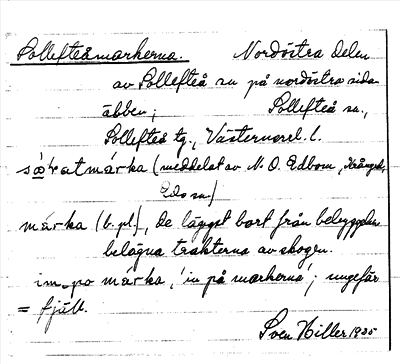 Sollefteåmarkerna. Nordöstra delen
av Sollefteå sn på nordöstra sidan
älven; Sollefteå sn.,
Sollefteå tg., Västernorrl. l.
(meddelat av N. O. Edbom,
Eds sn.)
márka (b. pl.), de längst bort från bebyggelsen
belägna trakterna av skogen.
im po márka, 'in på markerna'; ungefär
= fjäll.
Sven Hiller 1935